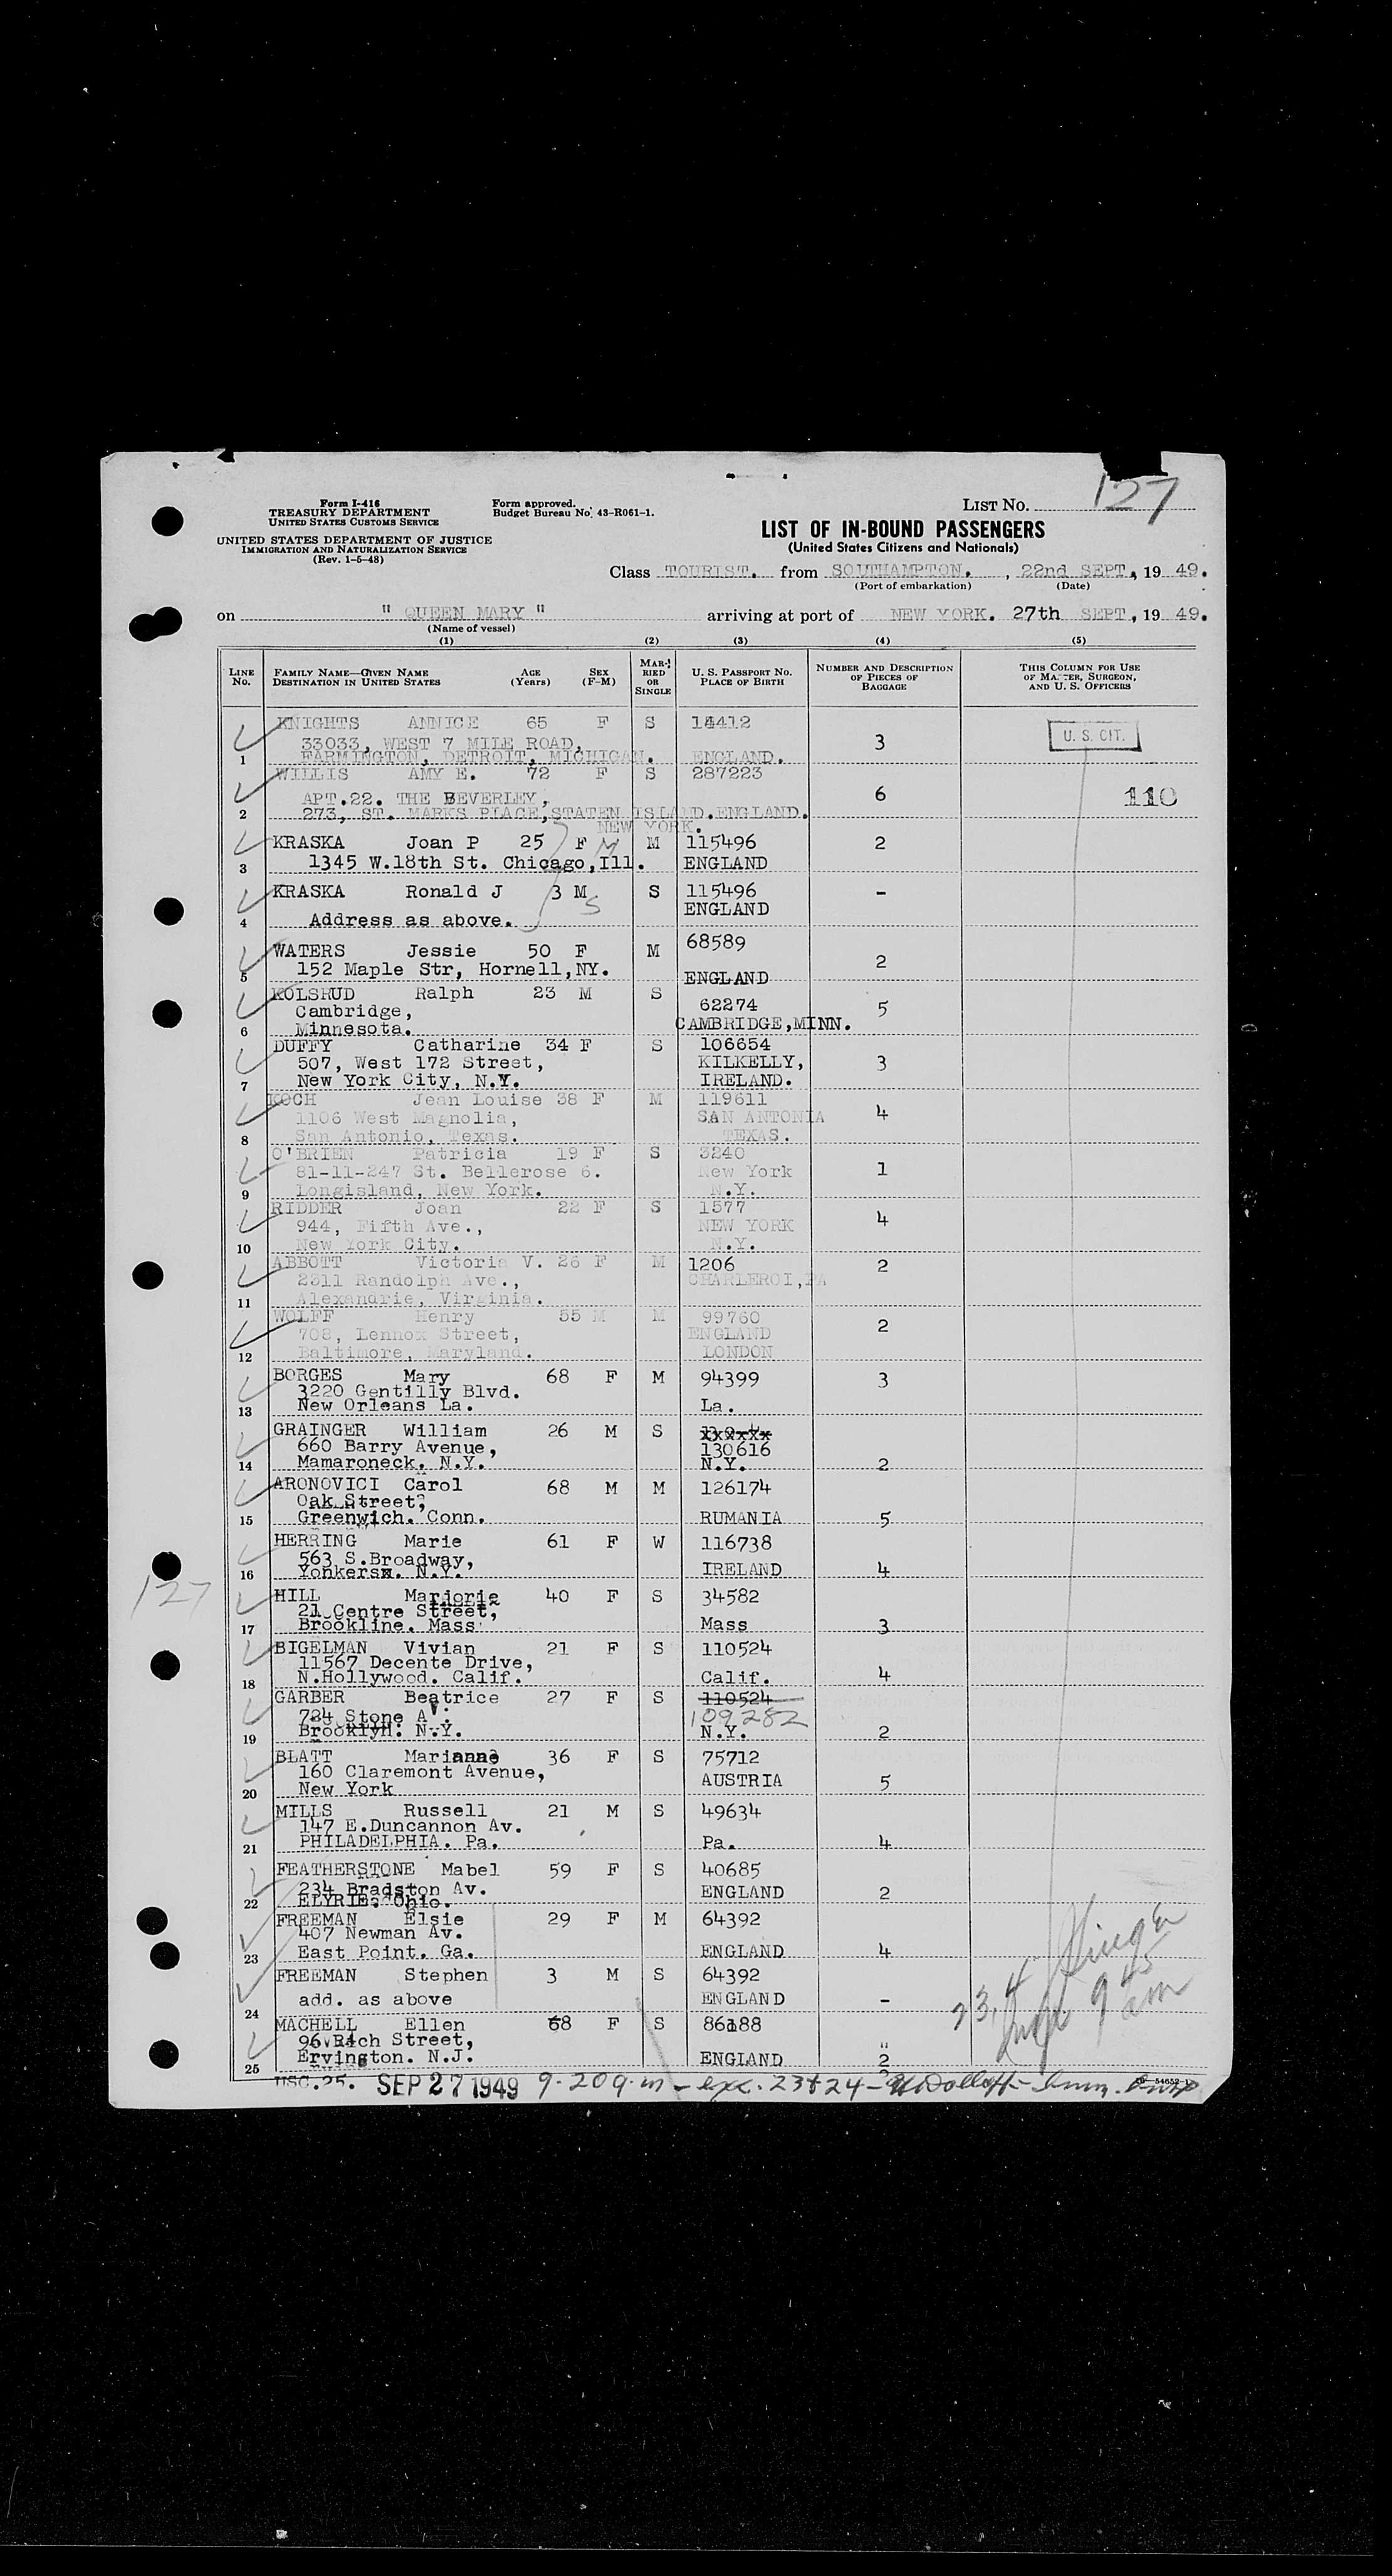 Form I-416
TREASURY DEPARTMENT
UNITED STATES CUSTOMS SERVICE
UNITED STATES DEPARTMENT OF JUSTICE
IMMIGRATION AND NATURALIZATION SERVICE
(Rev. 1-5-48)
Form approved.
Budget Bureau No. 43-R061-1.
LIST NO. 127
LIST OF IN-BOUND PASSENGERS
(United States Citizens and Nationals)
Class TOURIST. from SOUTHAMPTON. , 22nd SEPT., 19 49.
(Port of embarkation) (Date)
on " QUEEN MARY " arriving at port of NEW YORK. 27th SEPT., 19 49.
(Name of vessel)
(1) (2) (3) (4) (5)
LINE NO. FAMILY NAME—GIVEN NAME DESTINATION IN UNITED STATES AGE (Years) SEX (F-M) MARRIED OR SINGLE U. S. PASSPORT NO. PLACE OF BIRTH NUMBER AND DESCRIPTION OF PIECES OF BAGGAGE THIS COLUMN FOR USE OF MASTER, SURGEON, AND U. S. OFFICERS
KNIGHTS ANNICE 65 F S 14412
33033, WEST 7 MILE ROAD, 3 U. S. CIT.
1 FARMINGTON, DETROIT, MICHIGAN. ENGLAND.
WILLIS AMY E. 72 F S 287223
APT.22. THE BEVERLEY, 6 110
2 273, ST. MARKS PLACE, STATEN ISLAND. ENGLAND.
NEW YORK.
KRASKA Joan P 25 F M M 115496 2
3 1345 W.18th St. Chicago, Ill. ENGLAND
KRASKA Ronald J 3 M S S 115496 -
ENGLAND
4 Address as above.
WATERS Jessie 50 F M 68589
5 152 Maple Str, Hornell, NY. ENGLAND 2
KOLSRUD Ralph 23 M S
Cambridge, 62274 5
6 Minnesota. CAMBRIDGE, MINN.
DUFFY Catharine 34 F S 106654
507, West 172 Street, KILKELLY, 3
7 New York City, N.Y. IRELAND.
KOCH Jean Louise 38 F M 119611
1106 West Magnolia, SAN ANTONIA 4
8 San Antonio, Texas. TEXAS.
O'BRIEN Patricia 19 F S 3240
81-11-247 St. Bellerose 6. New York 1
9 Longisland, New York. N.Y.
RIDDER Joan 22 F S 1577
944, Fifth Ave., NEW YORK 4
10 New York City. N.Y.
ABBOTT Victoria V. 26 F M 1206 2
2311 Randolph Ave., CHARLEROI, PA
11 Alexandrie, Virginia.
WOLFF Henry 55 M M 99760
708, Lennox Street, ENGLAND 2
12 Baltimore, Maryland. LONDON
BORGES Mary 68 F M 94399 3
3220 Gentilly Blvd.
13 New Orleans La. La.
GRAINGER William 26 M S
660 Barry Avenue, 130616
14 Mamaroneck. N.Y. N.Y. 2
ARONOVICI Carol 68 M M 126174
Oak Street,
15 Greenwich. Conn. RUMANIA 5
HERRING Marie 61 F W 116738
563 S.Broadway,
16 Yonkers. N.Y. IRELAND 4
127
HILL Marjorie 40 F S 34582
21 Centre Street,
17 Brookline. Mass. Mass 3
BIGELMAN Vivian 21 F S 110524
11567 Decente Drive,
18 N.Hollywood. Calif. Calif. 4
GARBER Beatrice 27 F S 110524
724 Stone Av. 109282
19 Brooklyn. N.Y. N.Y. 2
BLATT Marianne 36 F S 75712
160 Claremont Avenue,
20 New York AUSTRIA 5
MILLS Russell 21 M S 49634
147 E.Duncannon Av.
21 PHILADELPHIA. Pa. Pa. 4
FEATHERSTONE Mabel 59 F S 40685
234 Bradston Av. ENGLAND 2
22 ELYRIE. Ohio.
FREEMAN Elsie 29 F M 64392
407 Newman Av.
23 East Point. Ga. ENGLAND 4
FREEMAN Stephen 3 M S 64392
add. as above ENGLAND -
24
MACHELL Ellen 68 F S 86188
96 Rich Street, "
25 Ervington. N.J. ENGLAND 2
9 45 am
USC.25. SEP 27 1949 9.20 a.m - exc. 23+24 -